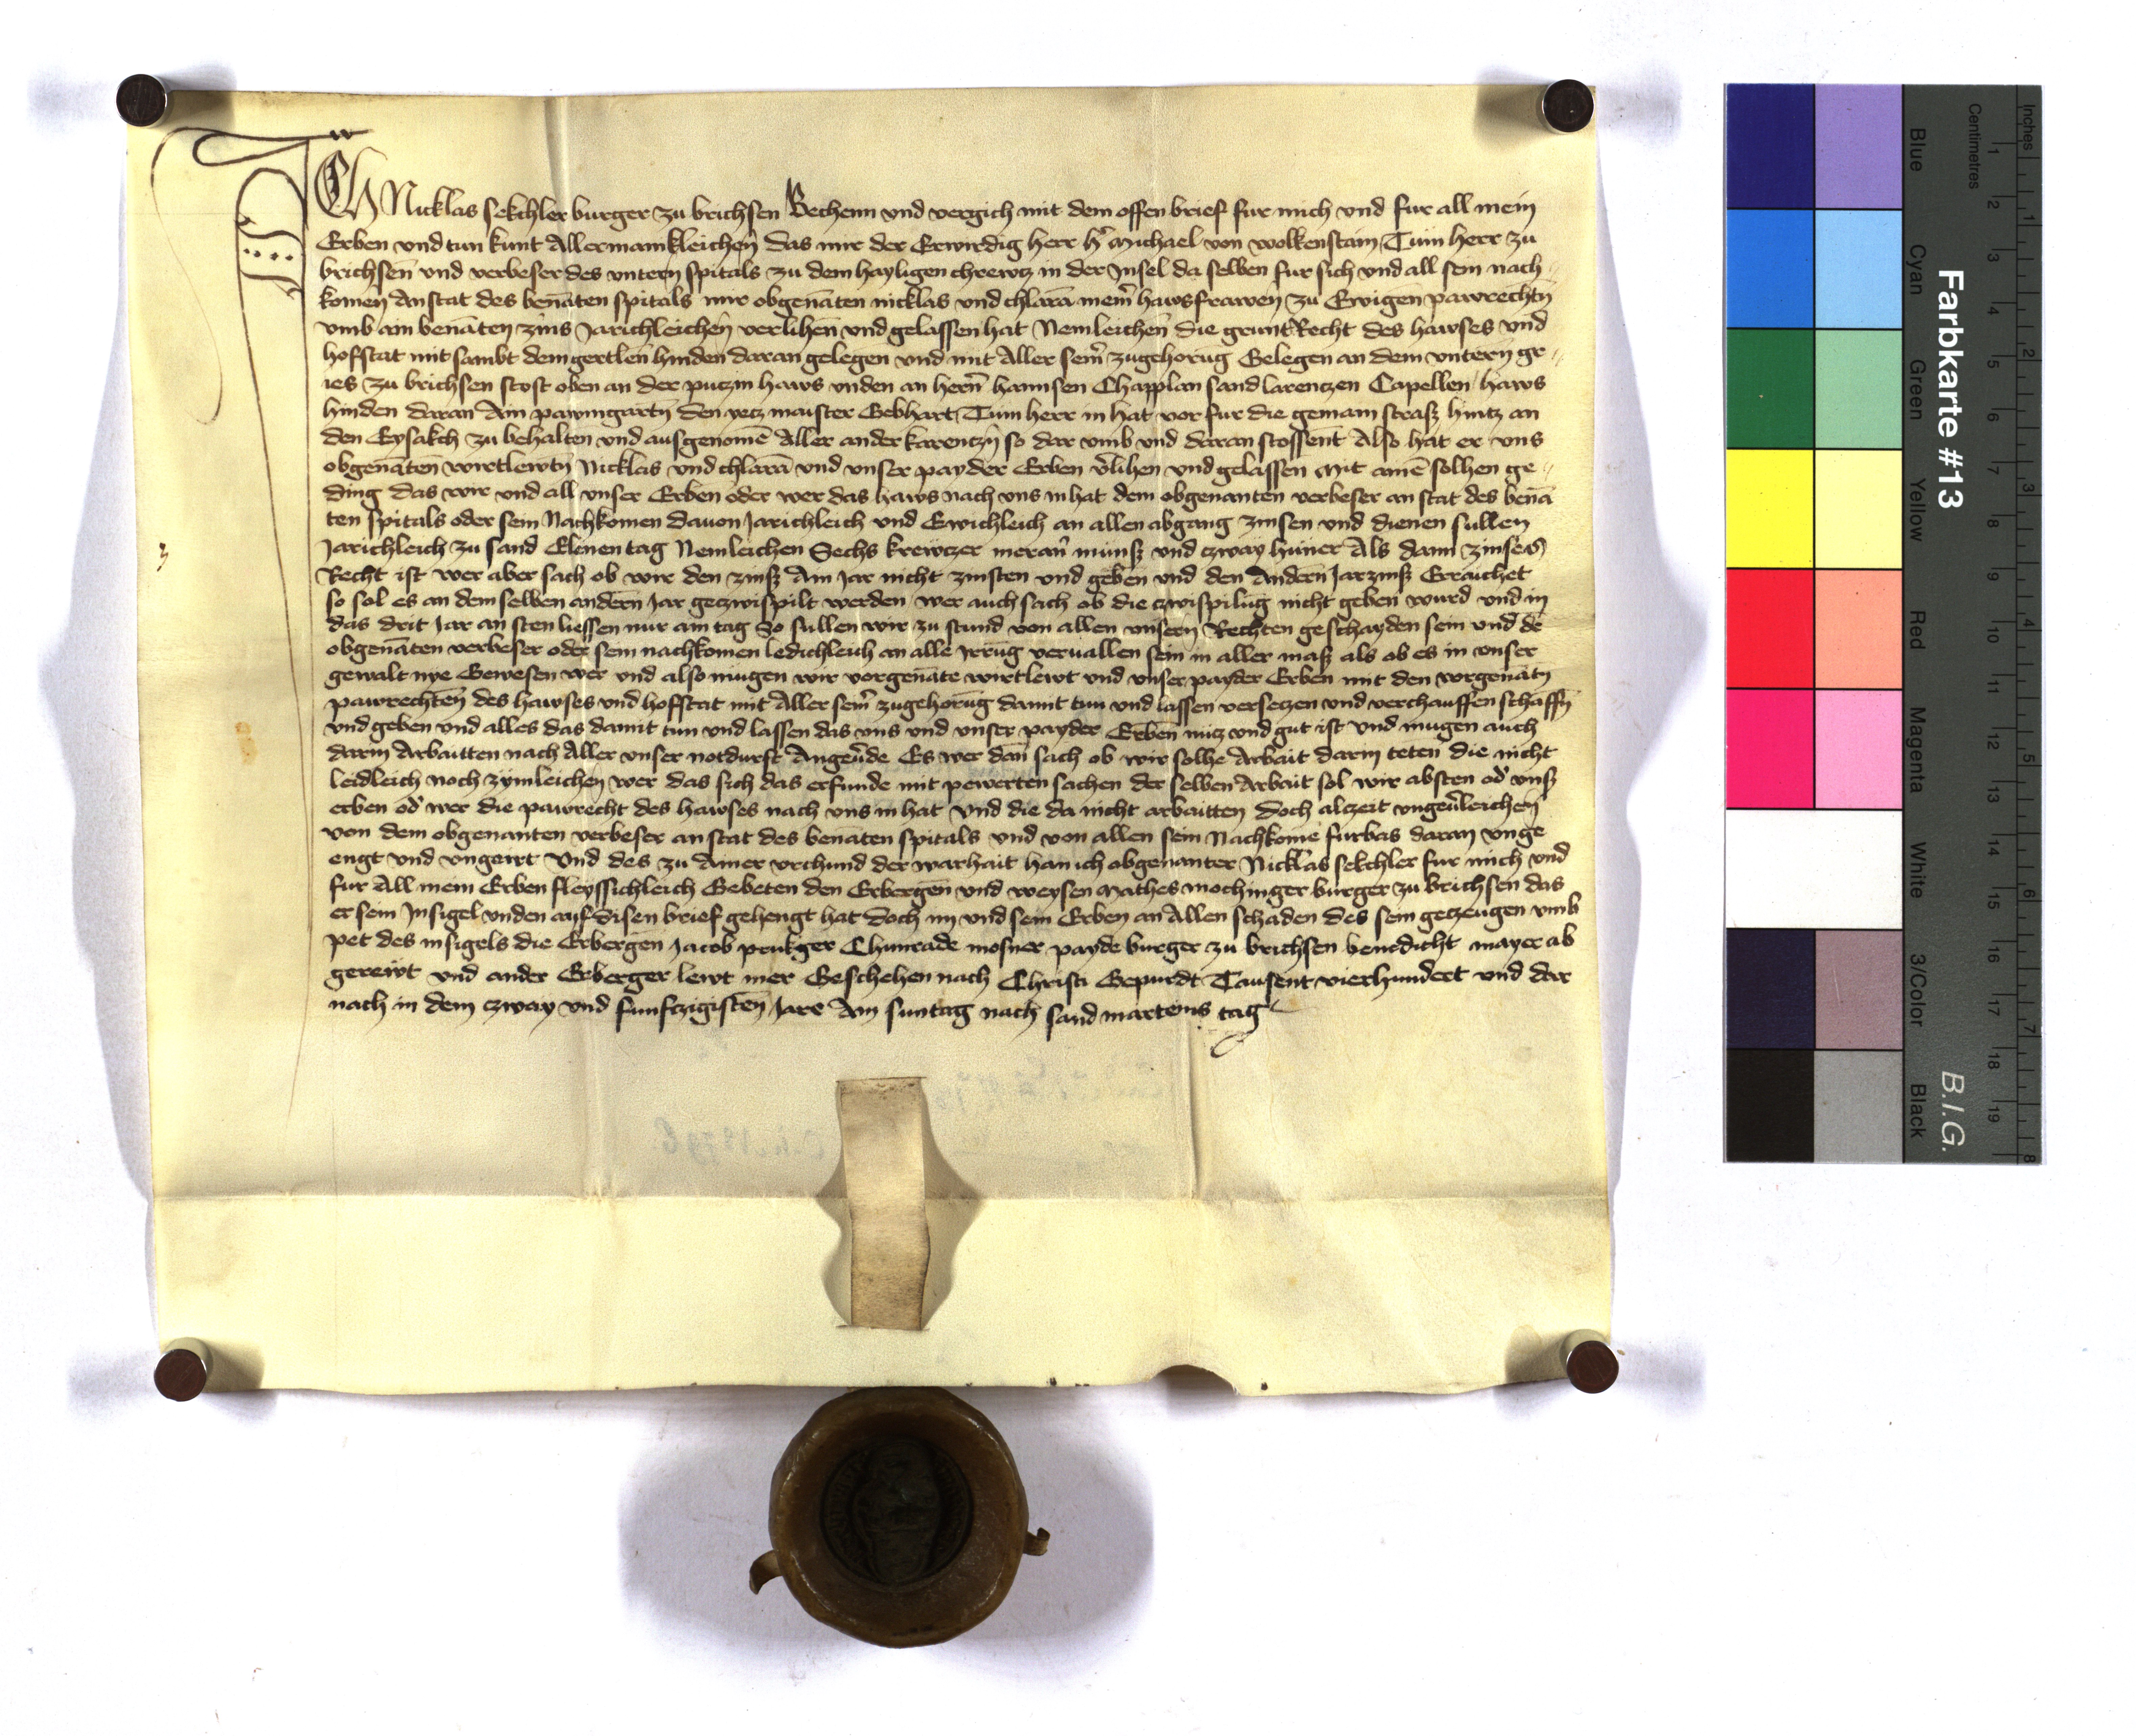 ICH Nicklas sekchler burger zu brichsen Bechenn und vergich mit dem offen brief fur mich und fur all mein
Erben und tun kunt Allermannkleichen das mir der Erwirdig herr hr Michael von wolkenstain Tum herr zu
brichsen und verbeser des untern spitals zu dem hayligen chrewtz in der Jnsel da selben fur sich und all sein nach
komen Anstat des benāten spitals mir obgenāten nicklas und chlarā mein hawsfrawen zu Ewigen pawrechtn
umb ain benāten zins Jarichleichen verlihen und gelassen hat Nemleichen die grunt Recht des hawses und
hofstat mit sambt dem gertlen hinden daran gelegen und mit Aller seiner zugehorūg Gelegen an dem untern gr
ies zu brichsen stost oben an der putzin haws unden an hern hannsen Chapplan sand larentzen Capellen haws
hinden daran Ain pawmgartn den yetz maister Gebhart Tum herr in hat vor fur die gemain strasz hintz an
den Eysakch zu behalten und ausgenomē Aller ander karentzn so dar umb und daran stossent Also hat er uns
obgenāten wirtlewtn Nicklas und chlarā und unser payder Erben vlihen und gelassen Mit ainē solhen ge
ding das wir und all unser Erben oder wer das haws nach uns in hat dem obgenanten verbeser an stat des benā
ten spitals oder sein Nachkomen davon Jarichleich und Ewichleich an allen abgang zinsen und dienen sullen
Jarichleich zu sand Elenen tag Nemleichen Sechs krewtzer meran munsz und zway huner Als dann zinses
Recht ist wer aber sach ob wir den zinsz Ain Jar nicht zinsten und geben und den Andern Jarzinsz Erraichet
so sol es an dem selben andern Jar getzwispilt werden wer auch sach ob die tzwispilūg nicht geben wurd und in
das drit Jar an sten liessen nur ain tag So sullen wir zu stund von allen unsern Rechten geschayden sein und dē
obgenāten verbeser oder sein nachkomen ledichleich an alle Jrrūg vervallen sein in aller masz als ob es in unser
gewalt nye Gewesen wer und also mugen wir vorgenāte wirtlewt und unser payder Erben mit den vorgenātn
pawrechten des hawses und hoffstat mit Aller seiner zugehorūg damit tun und lassen versetzen und verchauffen schaffn
und geben und alles das damit tun und lassen das uns und unser payder Erben nutz und gut ist und mugen auch
darin Arbaitten nach Aller unser notdurft Angevde Es wer dan sach ob wir solhe Arbait darin teten die nicht
leidleich noch zymleichen wer das sich das erfunde mit pewerten sachen der selben Arbait sol wir absten od unsz
erben od wer die pawrecht des hawses nach uns in hat und die da nicht arbaitten doch altzeit ungevleichen
von dem obgenanten verbeser an stat des benāten spitals und von allen sein Nachkomē furbas daran unge
engt und ungeirrt Und des zu Ainer urchund der warhait han ich obgenanter Nicklas sekchler fur mich und
fur All mein Erben fleyssichleich Gebeten den Erbergen und weysen Mathes mochinger burger zu brichsen das
er sein Jnsigel unden auf disen brief gehengt hat doch im und sein Erben an Allen schaden des sein getzeugen umb
pet des insigels die Erbergen Jacob prukger Chunrade mosner payde burger zu brichsen benedicht mayer ab
gerewt und ander Erberger lewt mer Geschehen nach Christi Gepurdt Tausent vierhundert und dar
nach in dem tzway und funftzigisten Jare Am suntag nach sand marteins tag
Farbkarte #13
B.I.G.
Blue Cyan Green Yellow Red Magenta White 3/Color Black
Centimetres 1 2 3 4 5 6 7 8 9 10 11 12 13 14 15 16 17 18 19
Inches 1 2 3 4 5 6 7 8